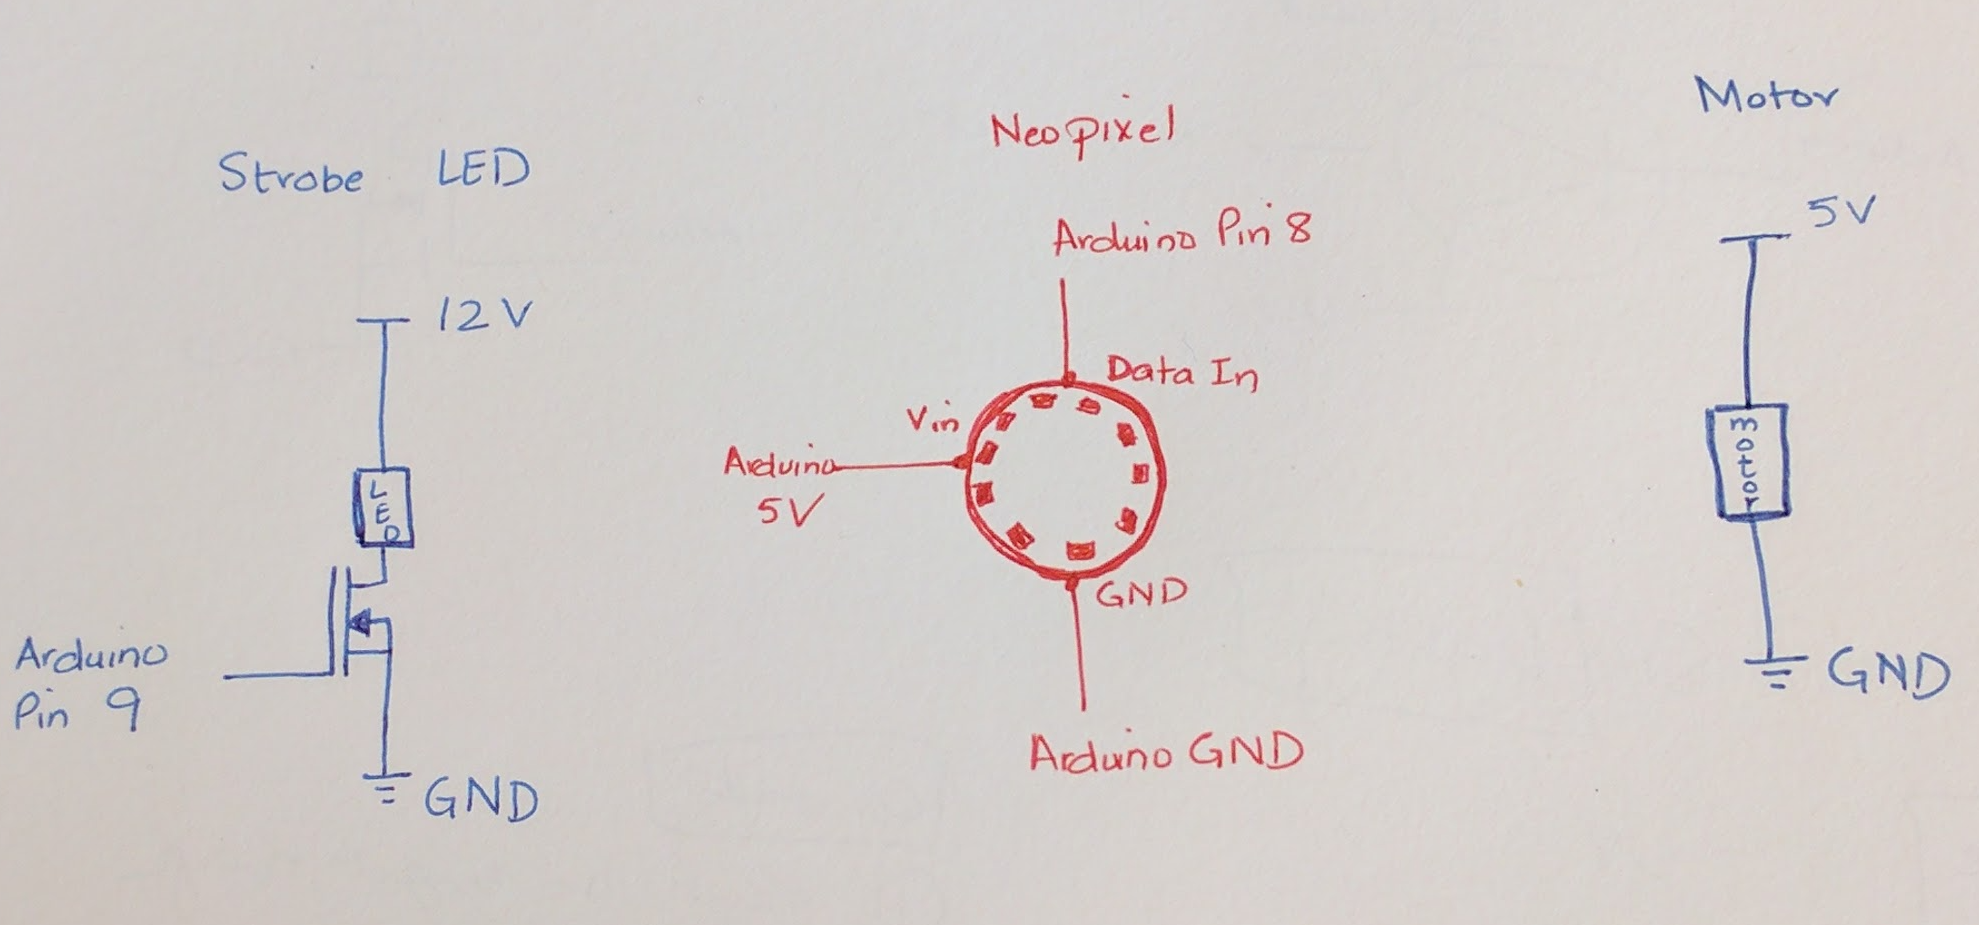 Strobe LED
12V
LED
Arduino
Pin 9
GND
Neopixel
Arduino Pin 8
Data In
Vin
Arduino
5V
GND
Arduino GND
Motor
5V
motor
GND